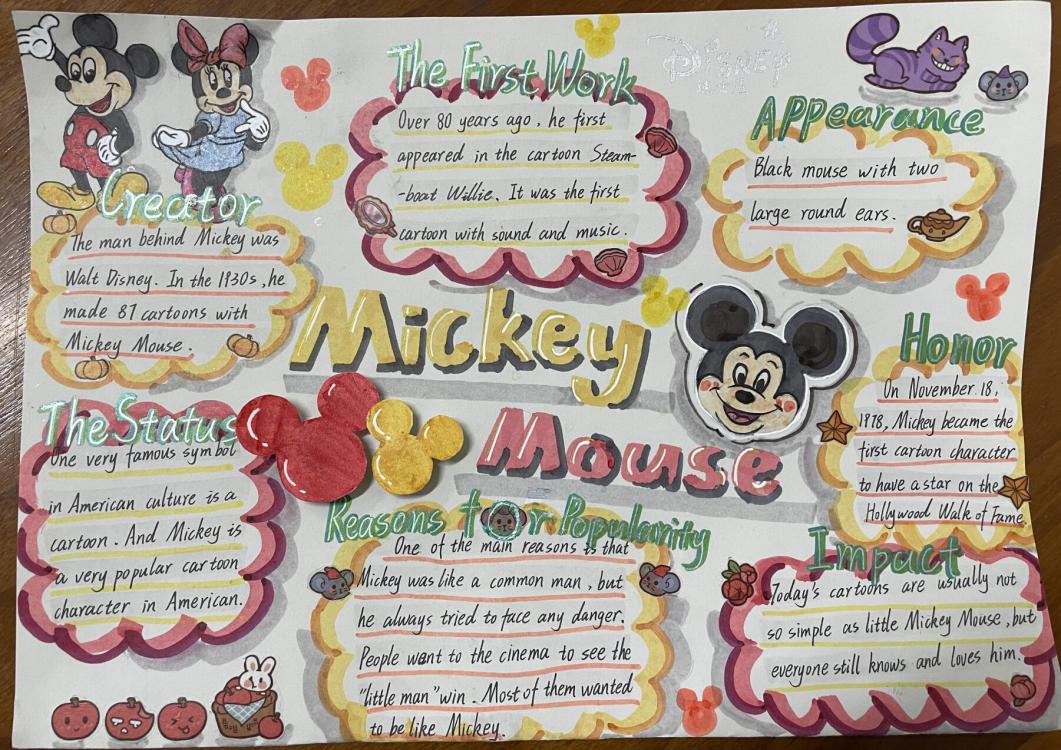 Disney
The First Work
Over 80 years ago, he first
appeared in the cartoon Steam-
-boat Willie. It was the first
cartoon with sound and music.
Appearance
Black mouse with two
large round ears.
Creator
The man behind Mickey was
Walt Disney. In the 1930s, he
made 87 cartoons with
Mickey Mouse.
Mickey
Mouse
Honor
On November 18,
1978, Mickey became the
first cartoon character
to have a star on the
Hollywood Walk of Fame.
The Status
One very famous symbol
in American culture is a
cartoon. And Mickey is
a very popular cartoon
character in American.
Reasons for Popularity
One of the main reasons is that
Mickey was like a common man, but
he always tried to face any danger.
People went to the cinema to see the
"little man" win. Most of them wanted
to be like Mickey.
Impact
Today's cartoons are usually not
so simple as little Mickey Mouse, but
everyone still knows and loves him.